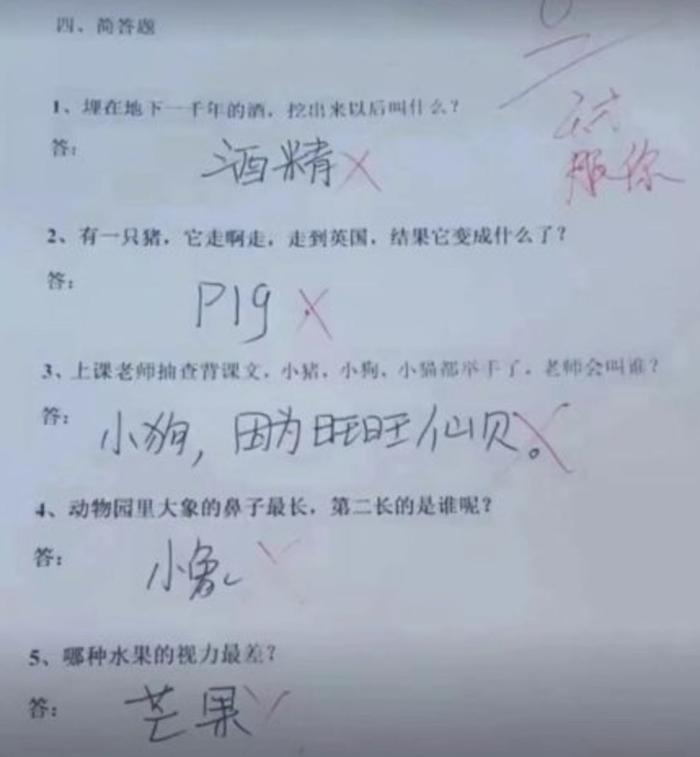 四、简答题
0
1、埋在地下一千年的酒，挖出来以后叫什么？
答：
酒精
服你
2、有一只猪，它走啊走，走到英国，结果它变成什么了？
答：
PIg
3、上课老师抽查背课文，小猪、小狗、小猫都举手了，老师会叫谁？
答：
小狗，因为旺旺仙贝。
4、动物园里大象的鼻子最长，第二长的是谁呢？
答：
小象
5、哪种水果的视力最差？
答：
芒果